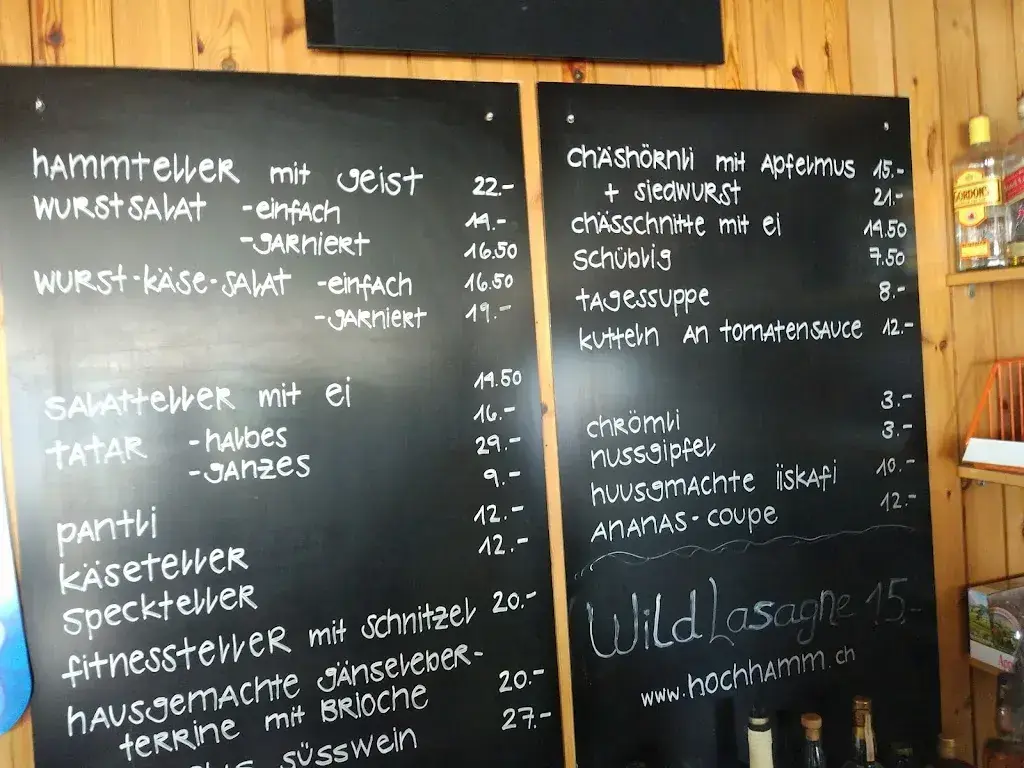 hammteller mit geist 22.-
wurstsalat -einfach 14.-
-garniert 16.50
wurst-käse-salat -einfach 16.50
-garniert 19.-
salatteller mit ei 14.50
tatar -halbes 16.-
-ganzes 29.-
pantli 9.-
käseteller 12.-
speckteller 12.-
fitnessteller mit schnitzel 20.-
hausgemachte gänseleber-
terrine mit brioche 20.-
süsswein 27.-
chäshörnli mit apfelmus 15.-
+ siedwurst 21.-
chässchnitte mit ei 14.50
schüblig 7.50
tagessuppe 8.-
kutteln an tomatensauce 12.-
chrömli 3.-
nussgipfel 3.-
huusgmachte iiskafi 10.-
ananas-coupe 12.-
Wild Lasagne 15.-
www.hochhamm.ch
GORDON'S